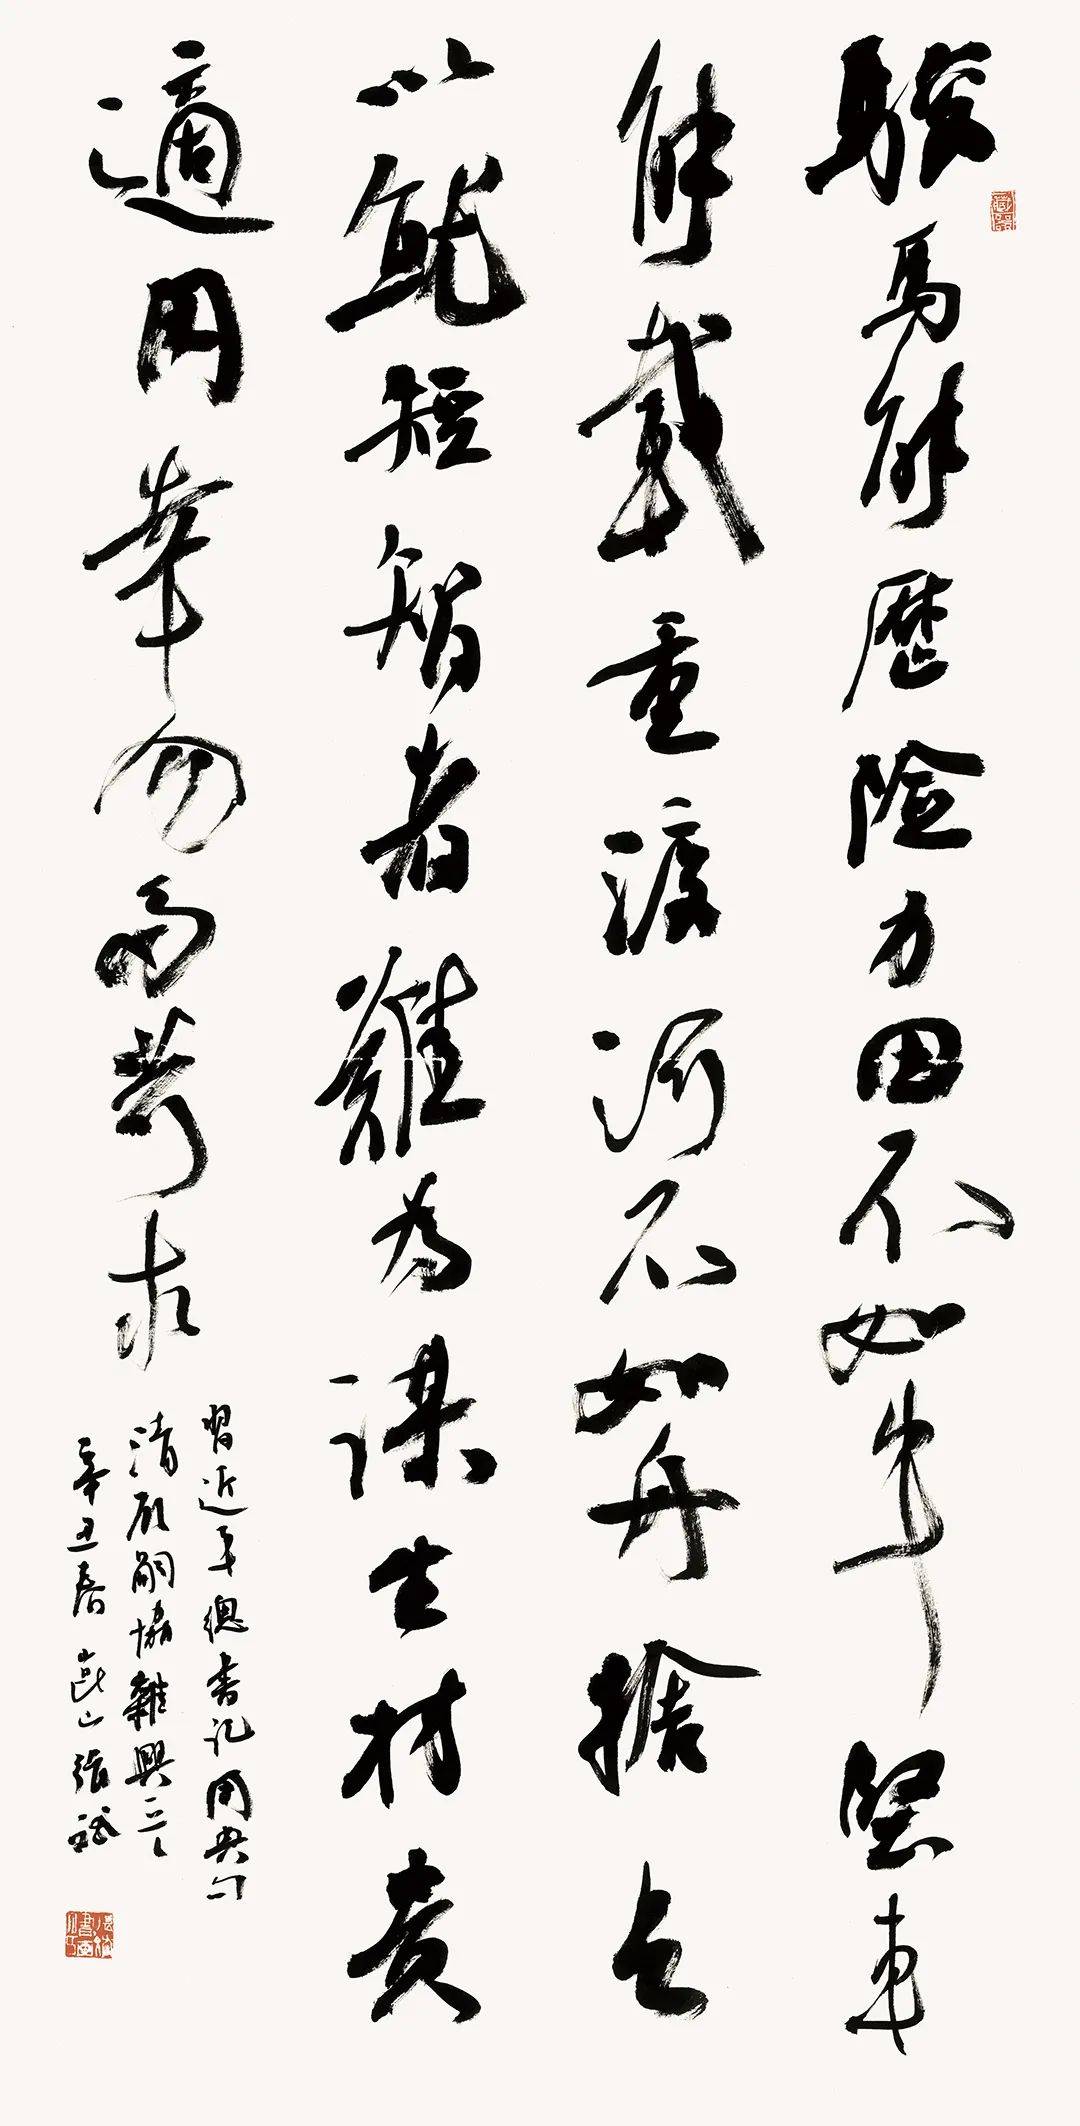 駿馬能歷險力田不如牛堅車
能載重渡河不如舟捨長
以就短智者難為謀生材貴
適用幸勿多苛求
習近平總書記用典句
清顧嗣協雜興
辛丑春 山張